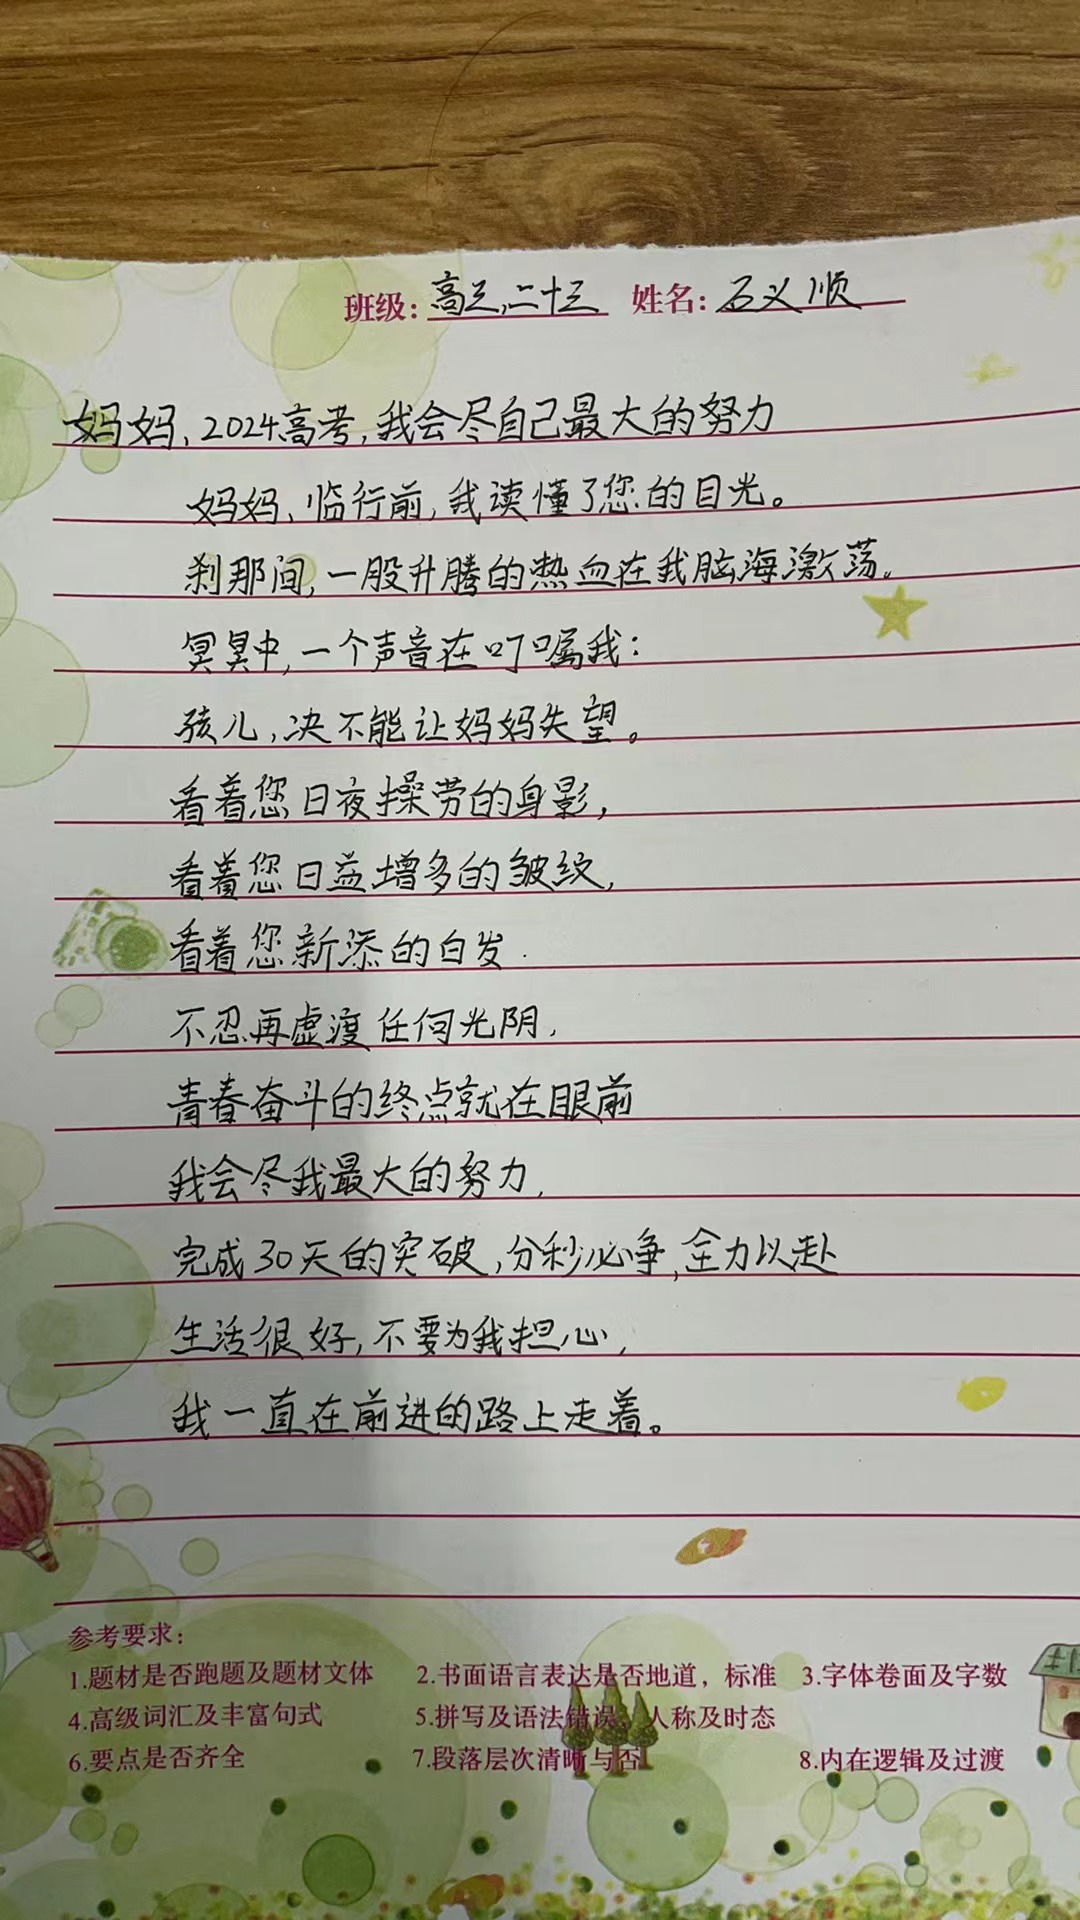 班级:高三,二十三 姓名:石义顺
妈妈、2024高考,我会尽自己最大的努力
妈妈、临行前,我读懂了您的目光。
刹那间,一股升腾的热血在我脑海激荡。
冥冥中,一个声音在叮嘱我:
孩儿,决不能让妈妈失望。
看着您日夜操劳的身影,
看着您日益增多的皱纹,
看着您新添的白发.
不忍再虚度任何光阴,
青春奋斗的终点就在眼前
我会尽我最大的努力,
完成30天的突破,分秒必争,全力以赴
生活很好,不要为我担心,
我一直在前进的路上走着。
参考要求:
1.题材是否跑题及题材文体 2.书面语言表达是否地道，标准 3.字体卷面及字数
4.高级词汇及丰富句式 5.拼写及语法错误、人称及时态
6.要点是否齐全 7.段落层次清晰与否 8.内在逻辑及过渡